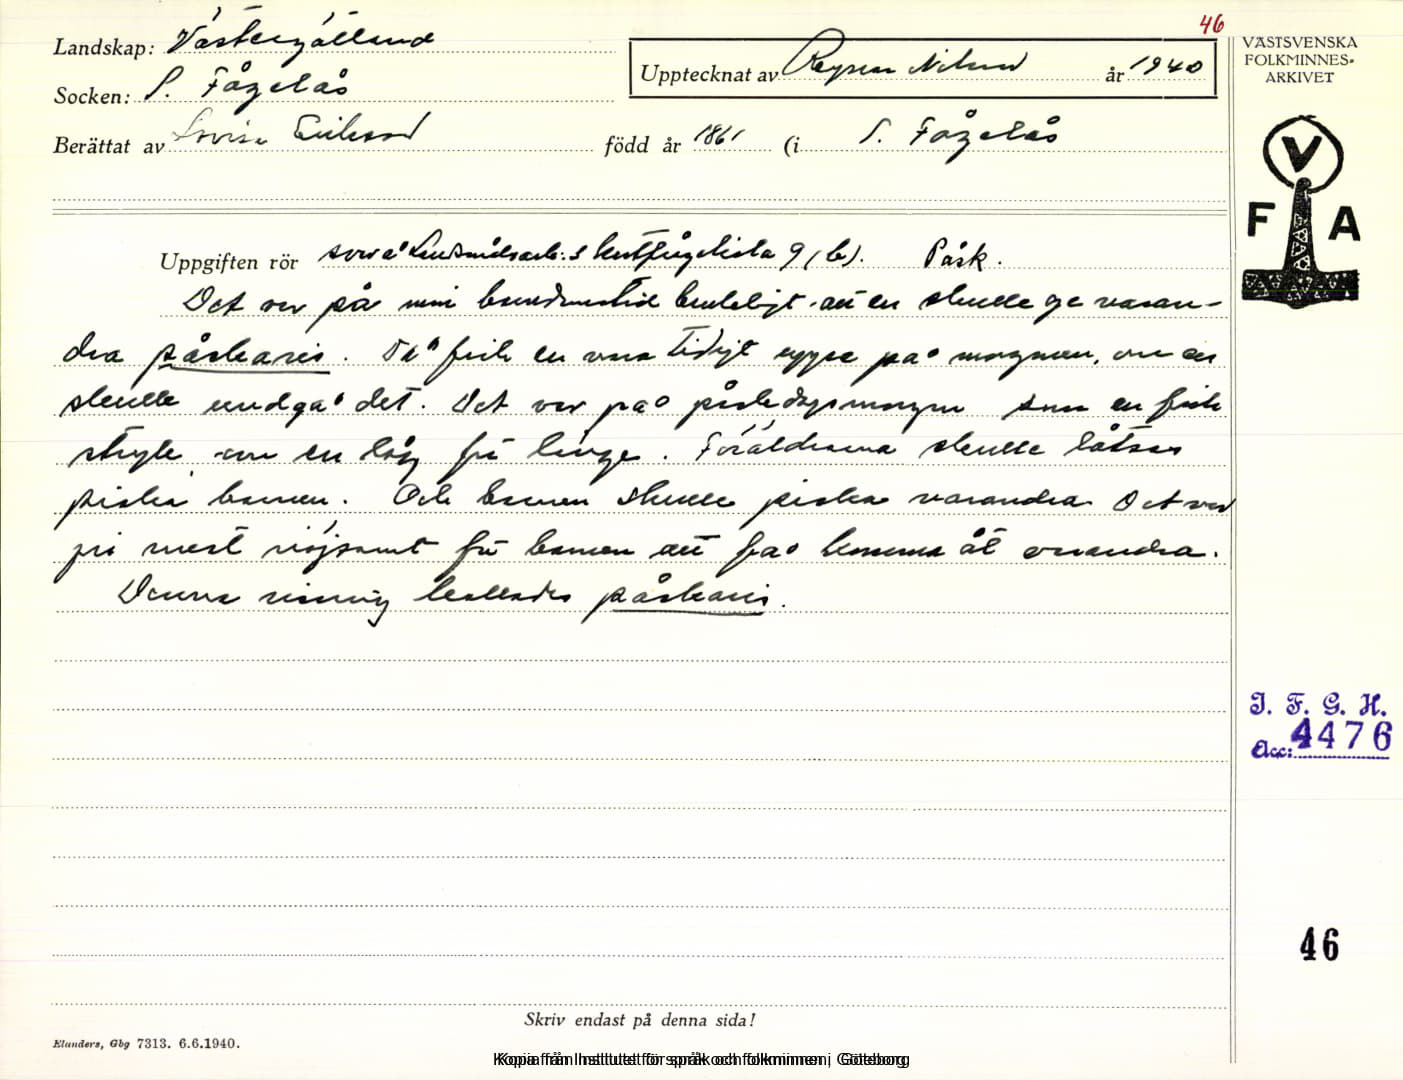 46
Landskap: Västergötland
Socken: S. Fågelås
Berättat av Lovisa Eriksson född år 1861 (i S. Fågelås
Upptecknat av Ragnar Nilsson år 1940
VÄSTSVENSKA
FOLKMINNES-
ARKIVET
V
F A
Uppgiften rör svar å Landsmålsark:s kortfrågelista 9 (b). Påsk.
Det var på min barndomstid brukligt att en skulle ge varan-
dra påskaris. Då fick en vara tidigt uppe på morgonen, om en
skulle undgå det. Det var på påskdagsmorgon som en fick
stryk om en låg för länge. Föräldrarna skulle låtsas
piska barnen. Och barnen skulle piska varandra. Det var
ju mest nöjsamt för barnen att få komma åt varandra.
Denna risning kallades påskaris.
I. F. G. H.
Acc: 4476
46
Skriv endast på denna sida!
Elanders, Gbg 7313. 6.6.1940.
Kopia från Institutet för språk och folkminnen, Göteborg